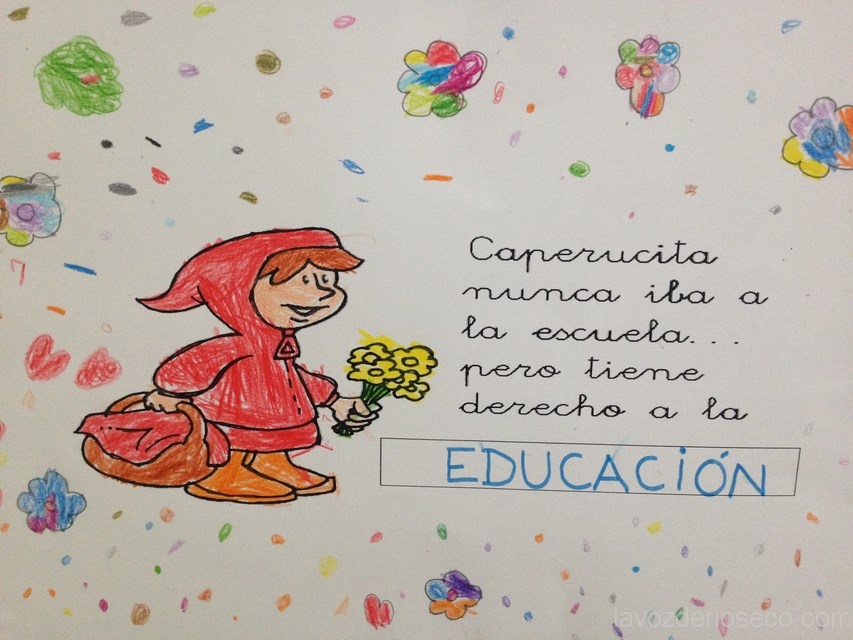 Caperucita
nunca iba a
la escuela...
pero tiene
derecho a la
EDUCACiÓN
lavozderioseco.com